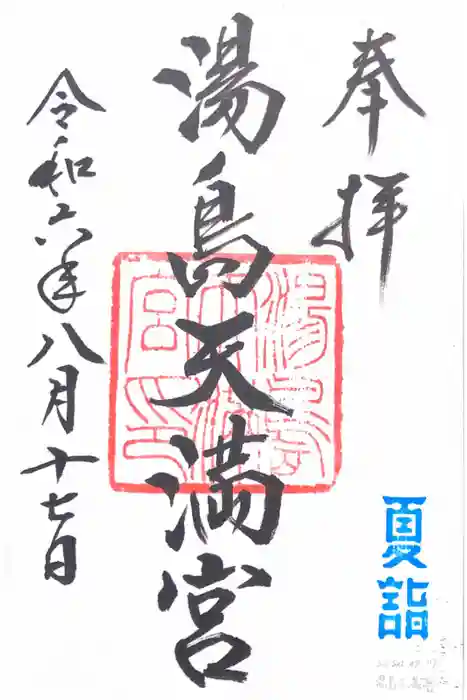 奉拝
湯島天満宮
湯島天満宮印
令和六年八月十七日
夏詣